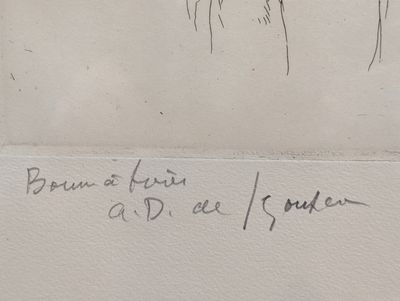 Bon à tirer
A.D. de Segonzac